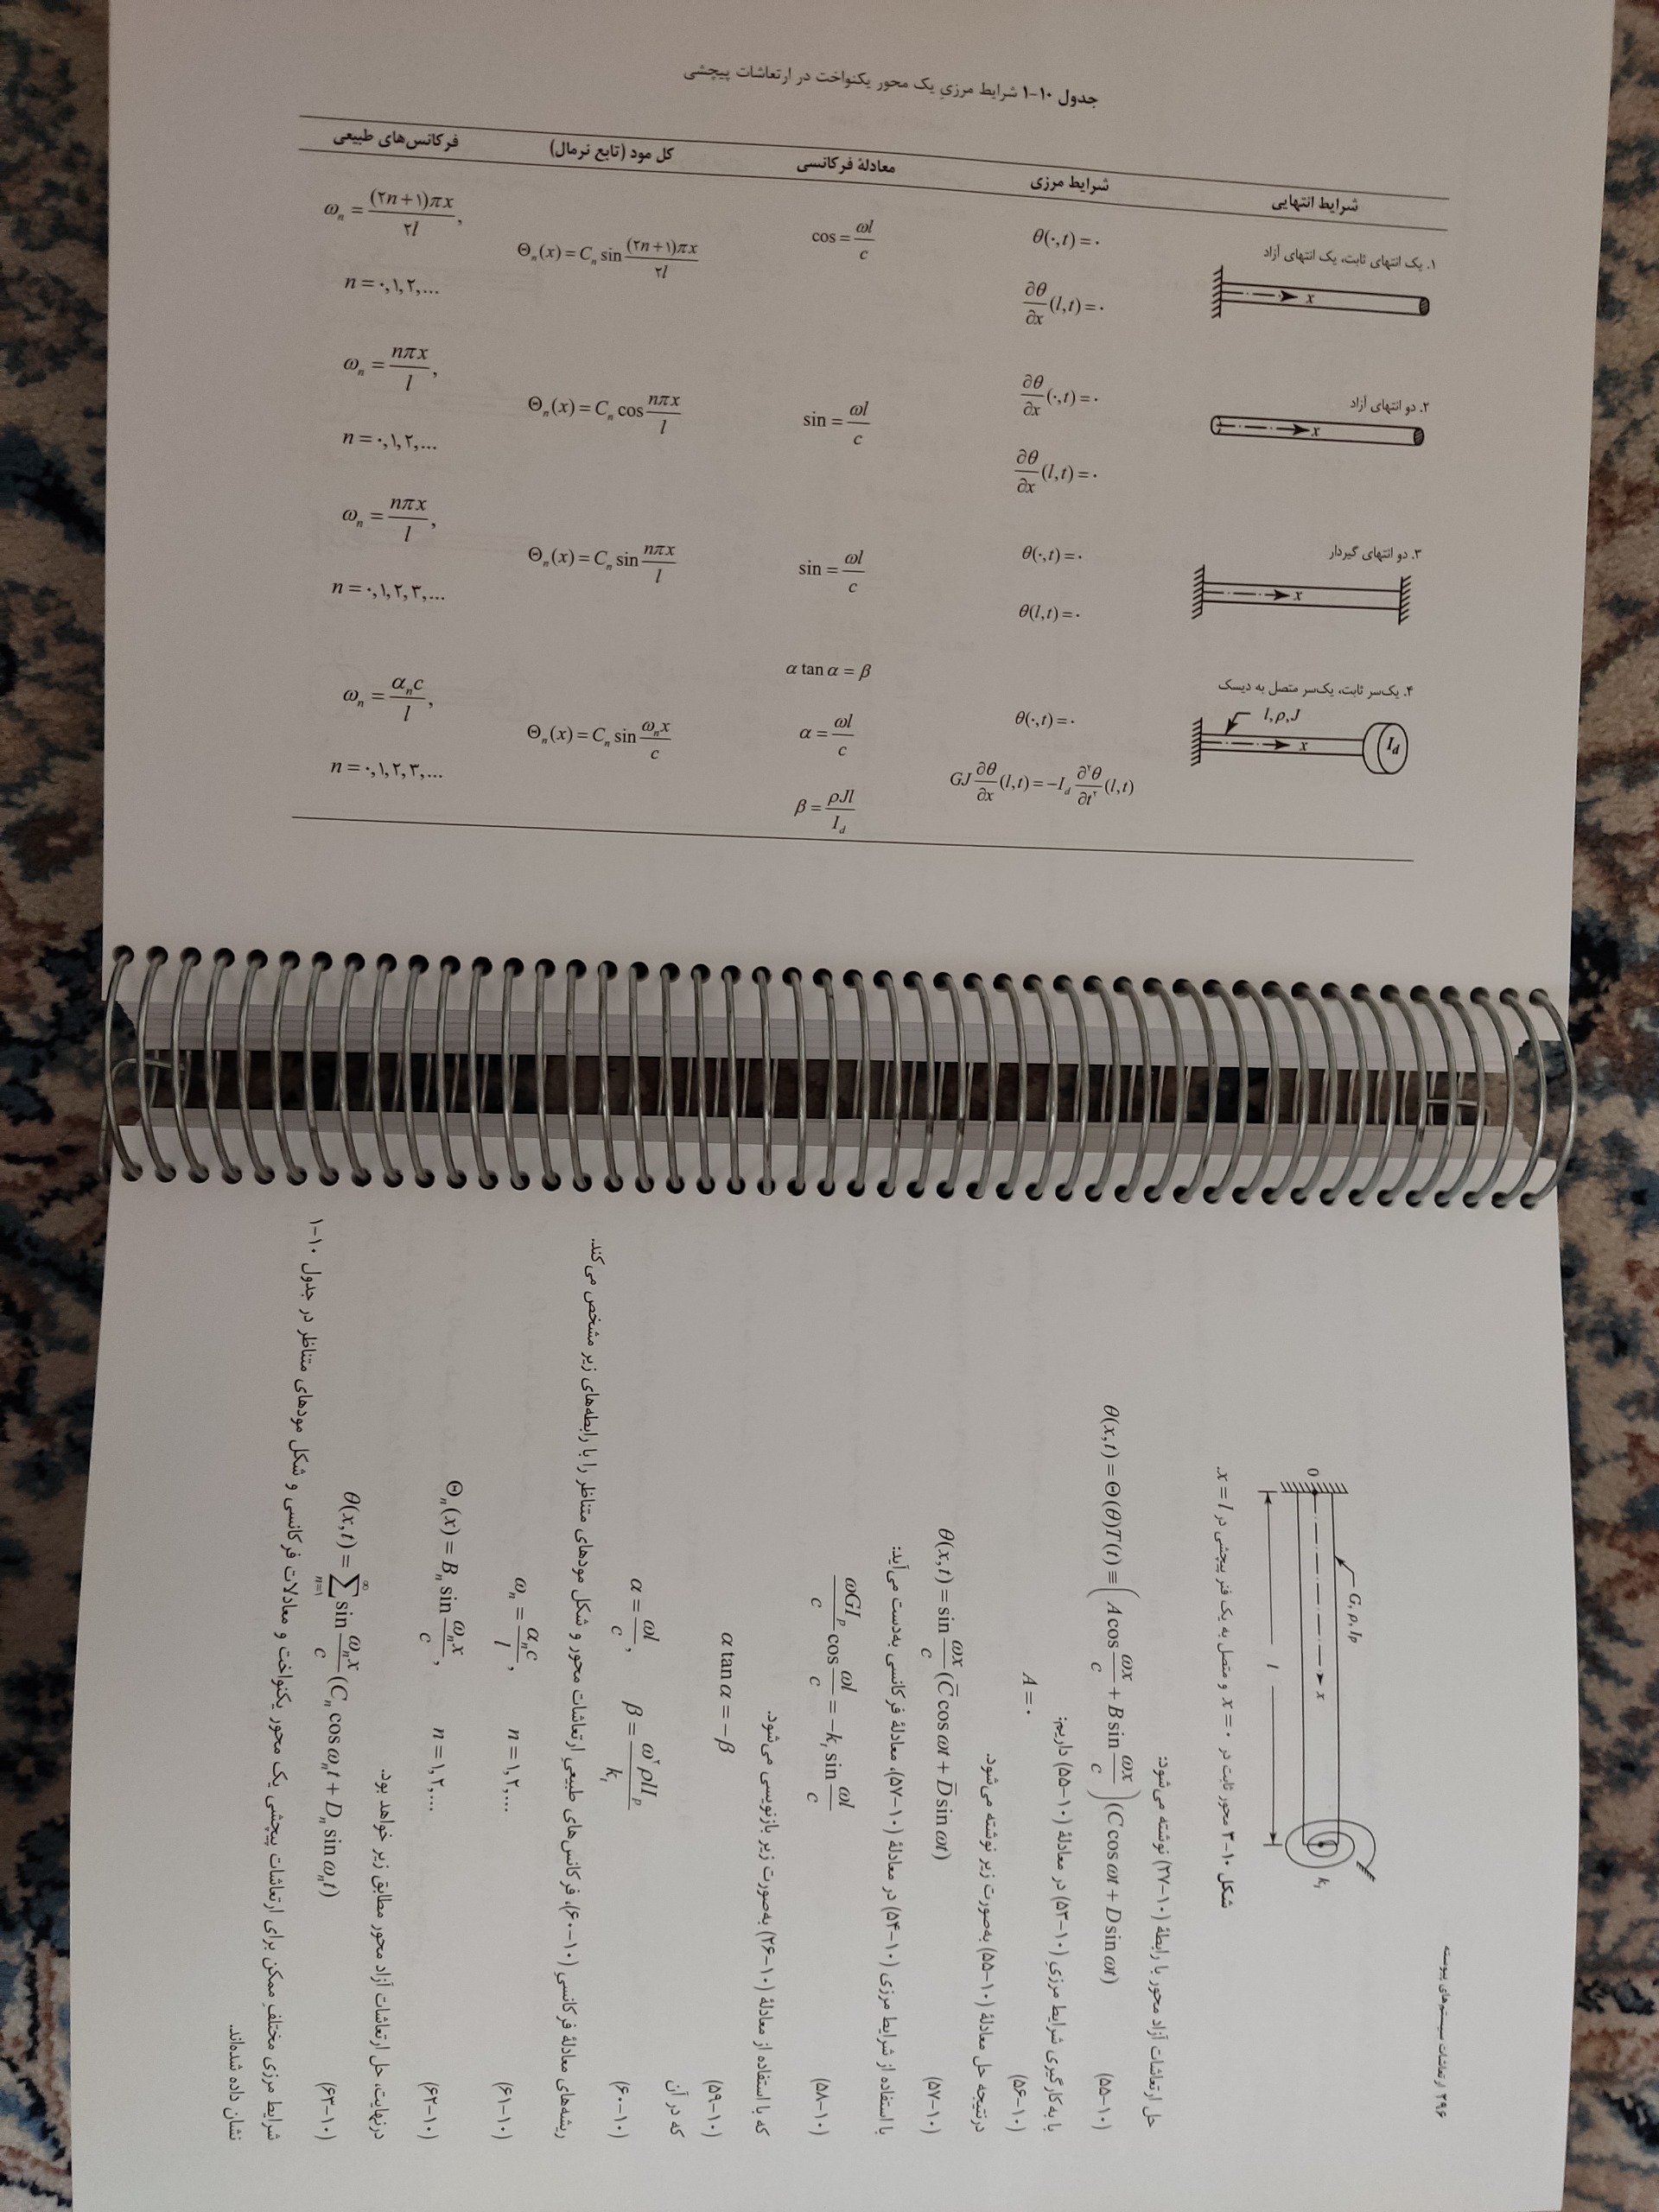 ۲۹۶ ارتعاشات سیستم‌های پیوسته
G, ρ, I_P
0
x
l
k_t
شکل ۱۰-۳ محور ثابت در x = ۰ و متصل به یک فنر پیچشی در x = l.
حل ارتعاشات آزاد محور با رابطهٔ (۱۰-۲۷) نوشته می‌شود:
θ(x,t) = Θ(θ)T(t) ≡ (A cos ωx/c + B sin ωx/c)(C cos ωt + D sin ωt) (۱۰-۵۵)
با به‌کارگیری شرایط مرزیِ (۱۰-۵۳) در معادلهٔ (۱۰-۵۵) داریم:
A = ۰ (۱۰-۵۶)
درنتیجه حل معادلهٔ (۱۰-۵۵) به‌صورت زیر نوشته می‌شود.
θ(x,t) = sin ωx/c (C̄ cos ωt + D̄ sin ωt) (۱۰-۵۷)
با استفاده از شرایط مرزی (۱۰-۵۴) در معادلهٔ (۱۰-۵۷)، معادلهٔ فرکانسی به‌دست می‌آید:
ωGI_p/c cos ωl/c = −k_t sin ωl/c (۱۰-۵۸)
که با استفاده از معادلهٔ (۱۰-۲۶) به‌صورت زیر بازنویسی می‌شود.
α tan α = −β (۱۰-۵۹)
که در آن
α = ωl/c, β = ω²ρlI_p/k_t (۱۰-۶۰)
ریشه‌های معادلهٔ فرکانسیِ (۱۰-۶۰)، فرکانس‌های طبیعیِ ارتعاشات محور و شکل مودهای متناظر را با رابطه‌های زیر مشخص می‌کند.
ω_n = α_n c/l, n = ۱,۲,... (۱۰-۶۱)
Θ_n(x) = B_n sin ω_n x/c, n = ۱,۲,... (۱۰-۶۲)
درنهایت، حل ارتعاشات آزاد محور مطابق زیر خواهد بود.
θ(x,t) = ∑_{n=۱}^{∞} sin ω_n x/c (C_n cos ω_n t + D_n sin ω_n t) (۱۰-۶۳)
شرایط مرزی مختلفِ ممکن برای ارتعاشات پیچشی یک محور یکنواخت و معادلات فرکانسی و شکل مودهای متناظر در جدول ۱۰-۱
نشان داده شده‌اند.
جدول ۱۰-۱ شرایط مرزیِ یک محور یکنواخت در ارتعاشات پیچشی
شرایط انتهایی شرایط مرزی معادلهٔ فرکانسی کل مود (تابع نرمال) فرکانس‌های طبیعی
۱. یک انتهای ثابت، یک انتهای آزاد
x
θ(۰,t) = ۰
∂θ/∂x (l,t) = ۰
cos = ωl/c
Θ_n(x) = C_n sin (۲n+۱)πx/۲l
ω_n = (۲n+۱)πx/۲l,
n = ۰,۱,۲,...
۲. دو انتهای آزاد
x
∂θ/∂x (۰,t) = ۰
∂θ/∂x (l,t) = ۰
sin = ωl/c
Θ_n(x) = C_n cos nπx/l
ω_n = nπx/l,
n = ۰,۱,۲,...
۳. دو انتهای گیردار
x
θ(۰,t) = ۰
θ(l,t) = ۰
sin = ωl/c
Θ_n(x) = C_n sin nπx/l
ω_n = nπx/l,
n = ۰,۱,۲,۳,...
۴. یک‌سر ثابت، یک‌سر متصل به دیسک
l, ρ, J
x
I_d
θ(۰,t) = ۰
GJ ∂θ/∂x (l,t) = −I_d ∂²θ/∂t² (l,t)
α tan α = β
α = ωl/c
β = ρJl/I_d
Θ_n(x) = C_n sin ω_n x/c
ω_n = α_n c/l,
n = ۰,۱,۲,۳,...